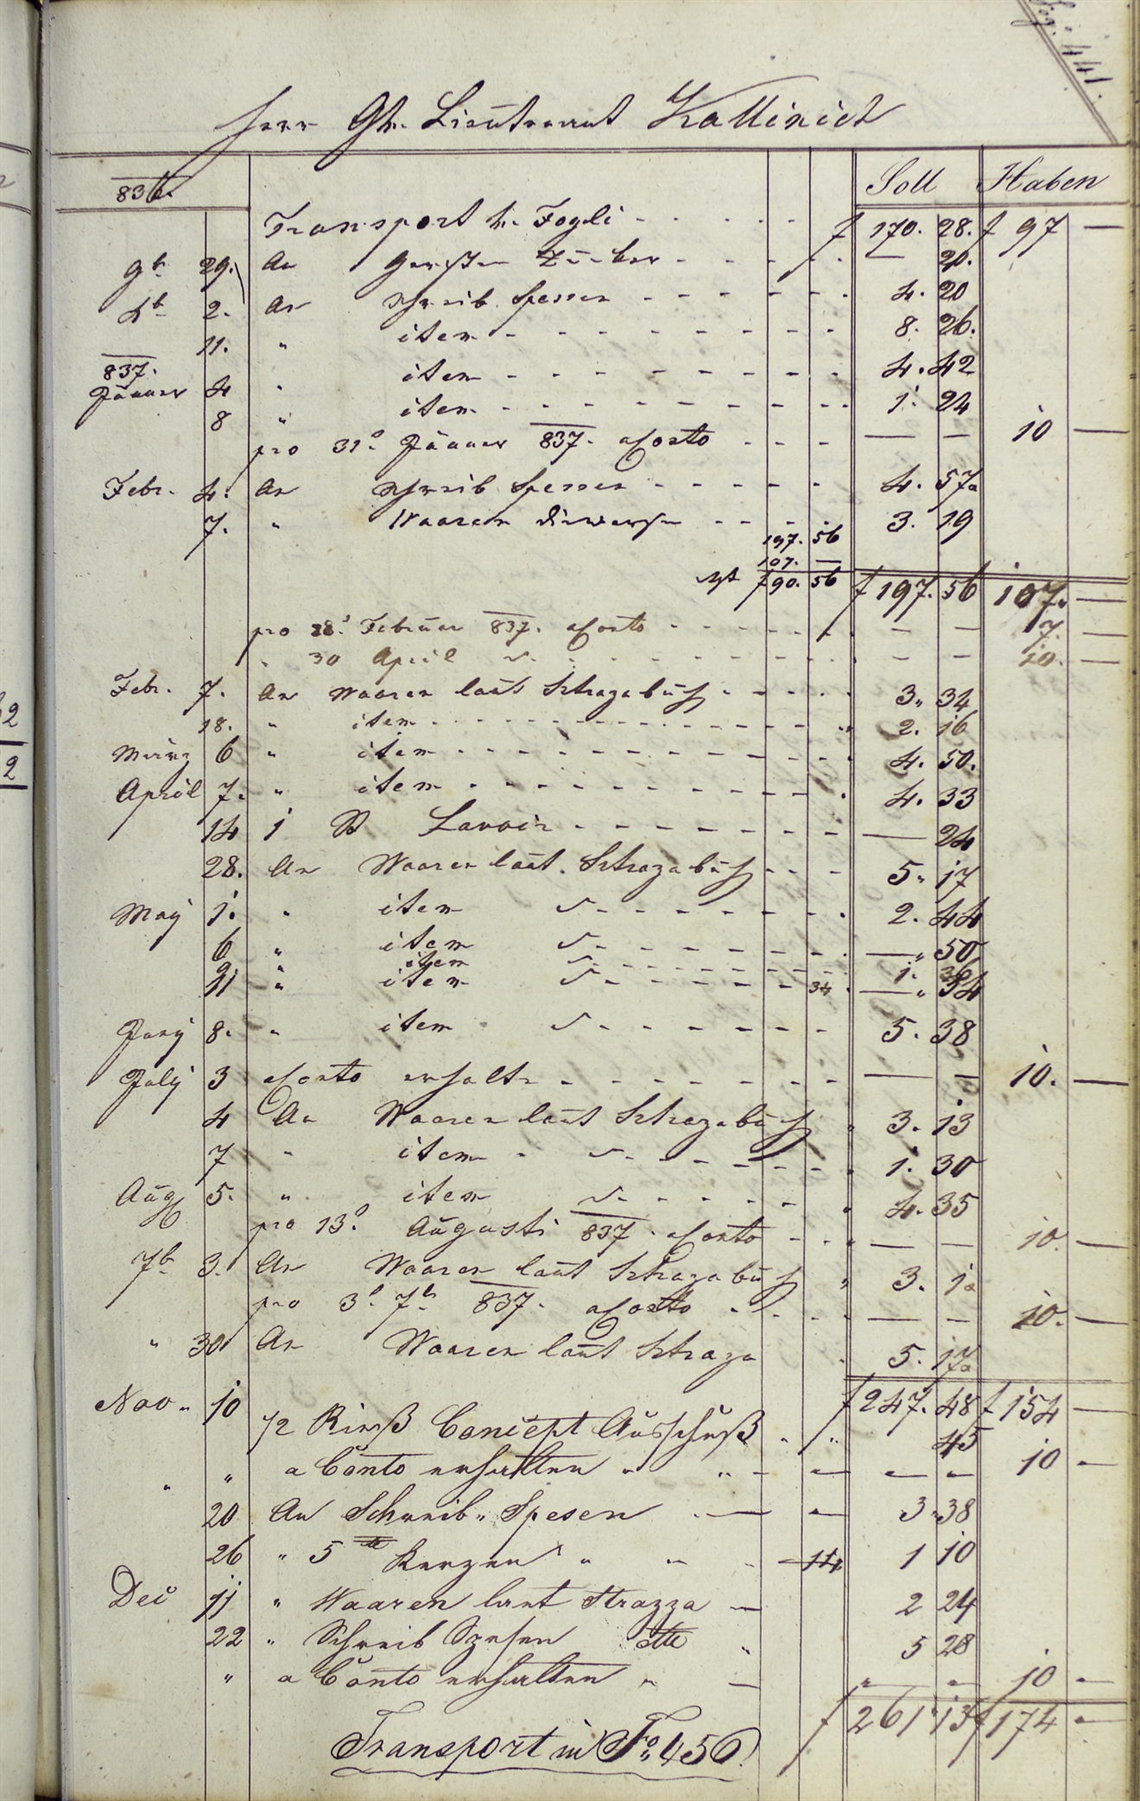 Fog. 441.
Herr Lieutenant Kallinich
Soll Haben
836.
Transport - - - - - f 170. 28. f 97 —
9b 29. An - - - - — 20.
Xb 2. An Schreib Spesen - - - - - - 4. 20
11. " item - - - - - - - - 8. 26.
837.
Jänner 4 " item - - - - - - - - 4. 42
8 " item - - - - - - - - 1. 24
pro 31° Jänner 837. aConto - - - — — 10 —
Febr. 4. An Schreib Spesen - - - - - 4. 57
7. " Waaren diverse - - - - 3. 19
197. 56
107. —
f 90. 56 f 197. 56 107. —
pro 28° Februar 837. aConto - - - - - — — 7. —
" 30 April - - - - - - - — — 10. —
Febr. 7. An Waaren laut Strazabuch - - - - 3. 34
18. " item - - - - - - - - - - 2. 16
März 6 " item - - - - - - - - - 4. 50.
April 7. " item - - - - - - - - - 4. 33
14 1 Lavoir - - - - - - - — 24
28. An Waaren laut. Strazabuch - - - 5. 17
May 1. " item - - - - - - 2. 44
6 " item - - - - - - — " 50
item - - - - - - 1.
11 " item - - - - - 34 — " 34
Juny 8. " item - - - - - - 5. 38
July 3 aConto erhalte - - - - - - - — — 10. —
4 An Waaren laut Strazabuch " 3. 13
7 " item - - - - - - 1. 30
Aug 5. " item - - - - - 4. 35
pro 13° Augusti 837. aConto - - - — — 10. —
7b 3. An Waaren laut Strazabuch " 3. 1
pro 3° 7b 837. aConto - - - - — — 10. —
" 30 An Waaren laut Straza 5. 17
f 247. 48 f 154 —
Nov. 10 1/2 Rieß Concept Ausschuß " " 45
" " a Conto erhalten " " — — — — 10 —
20 An Schreib. Spesen — — 3. 38
26 " 5 Kerzen " " — 14 1 10
Dec 11 " Waaren laut Strazza — 2 24
22 " Schreib Spesen dtto " 5 28
" a Conto erhalten " — " — 10 —
f 261 13 f 174 —
Transport in Fo. 456.